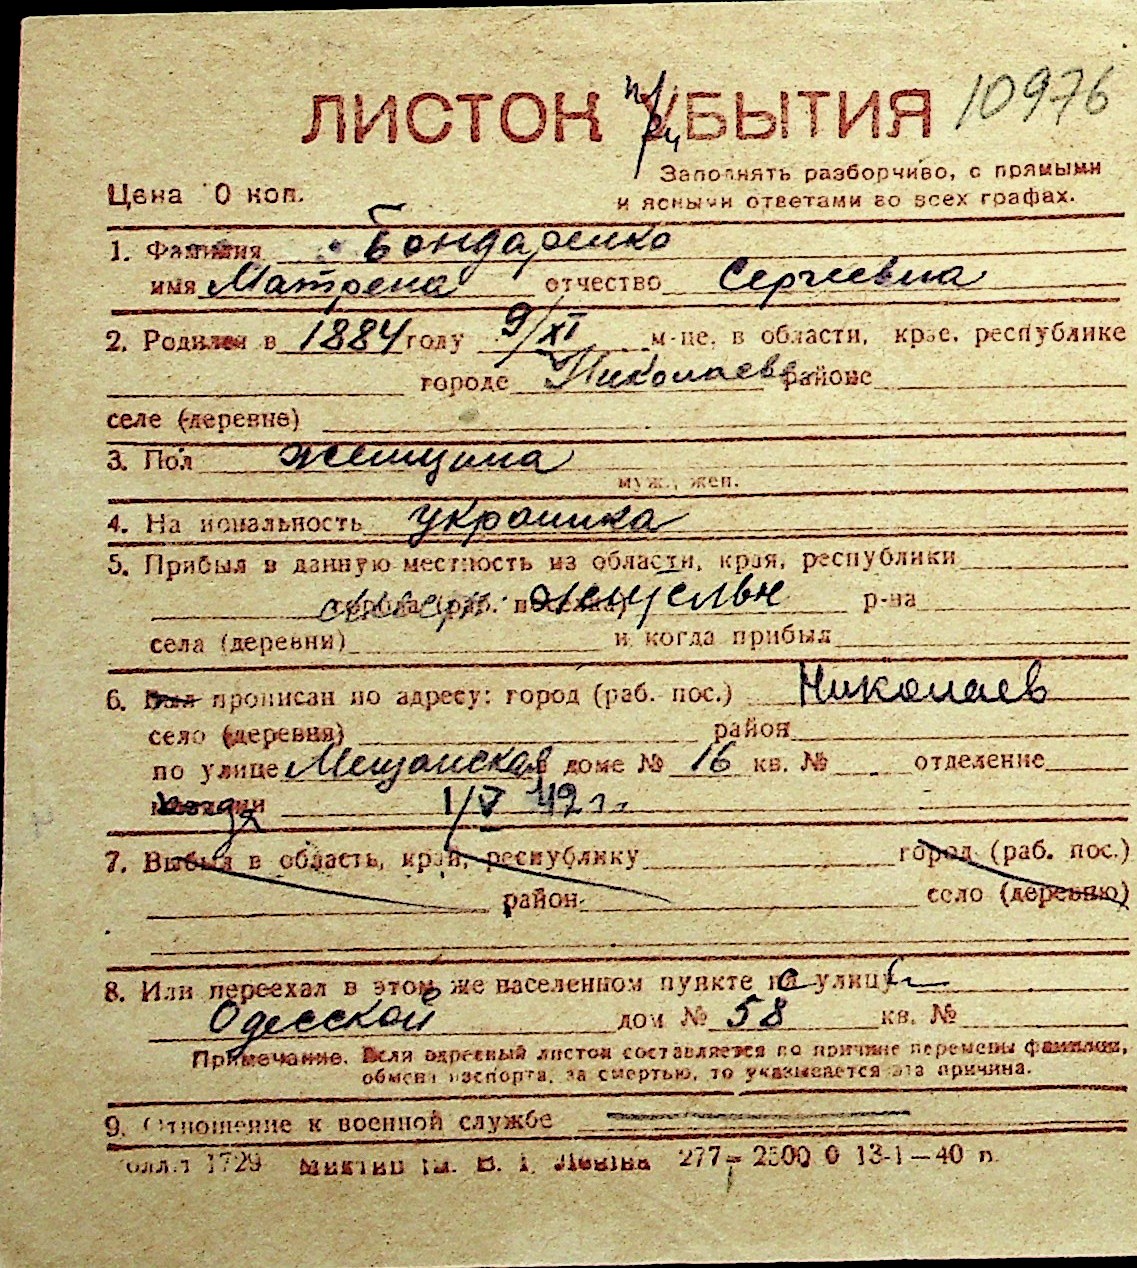 ЛИСТОК УБЫТИЯ 10976
при
Цена 0 коп.
Заполнять разборчиво, с прямыми
и ясными ответами во всех графах.
1. Фамилия Бондаренко
имя Матрена отчество Сергеевна
2. Родился в 1884 году 9/XI м-це, в области, крае, республике
городе Николаев районе
селе (деревне)
3. Пол женщина
муж., жен.
4. Национальность украинка
5. Прибыл в данную местность из области, края, республики
города (раб. поселка) жительн р-на
села (деревни) и когда прибыл
6. Был прописан по адресу: город (раб. пос.) Николаев
село (деревня) район
по улице Мещанская доме № 16 кв. № отделение
когда 1/V 42 г.
7. Выбыл в область, край, республику город (раб. пос.)
район село (деревню)
8. Или переехал в этом же населенном пункте с улицы
Одесской дом № 58 кв. №
Примечание. Если адресный листок составляется по причине перемены фамилии,
обмена паспорта, за смертью, то указывается эта причина.
9. Отношение к военной службе
1729 В. И. Ленина 277–2500 0 13-1–40 п.